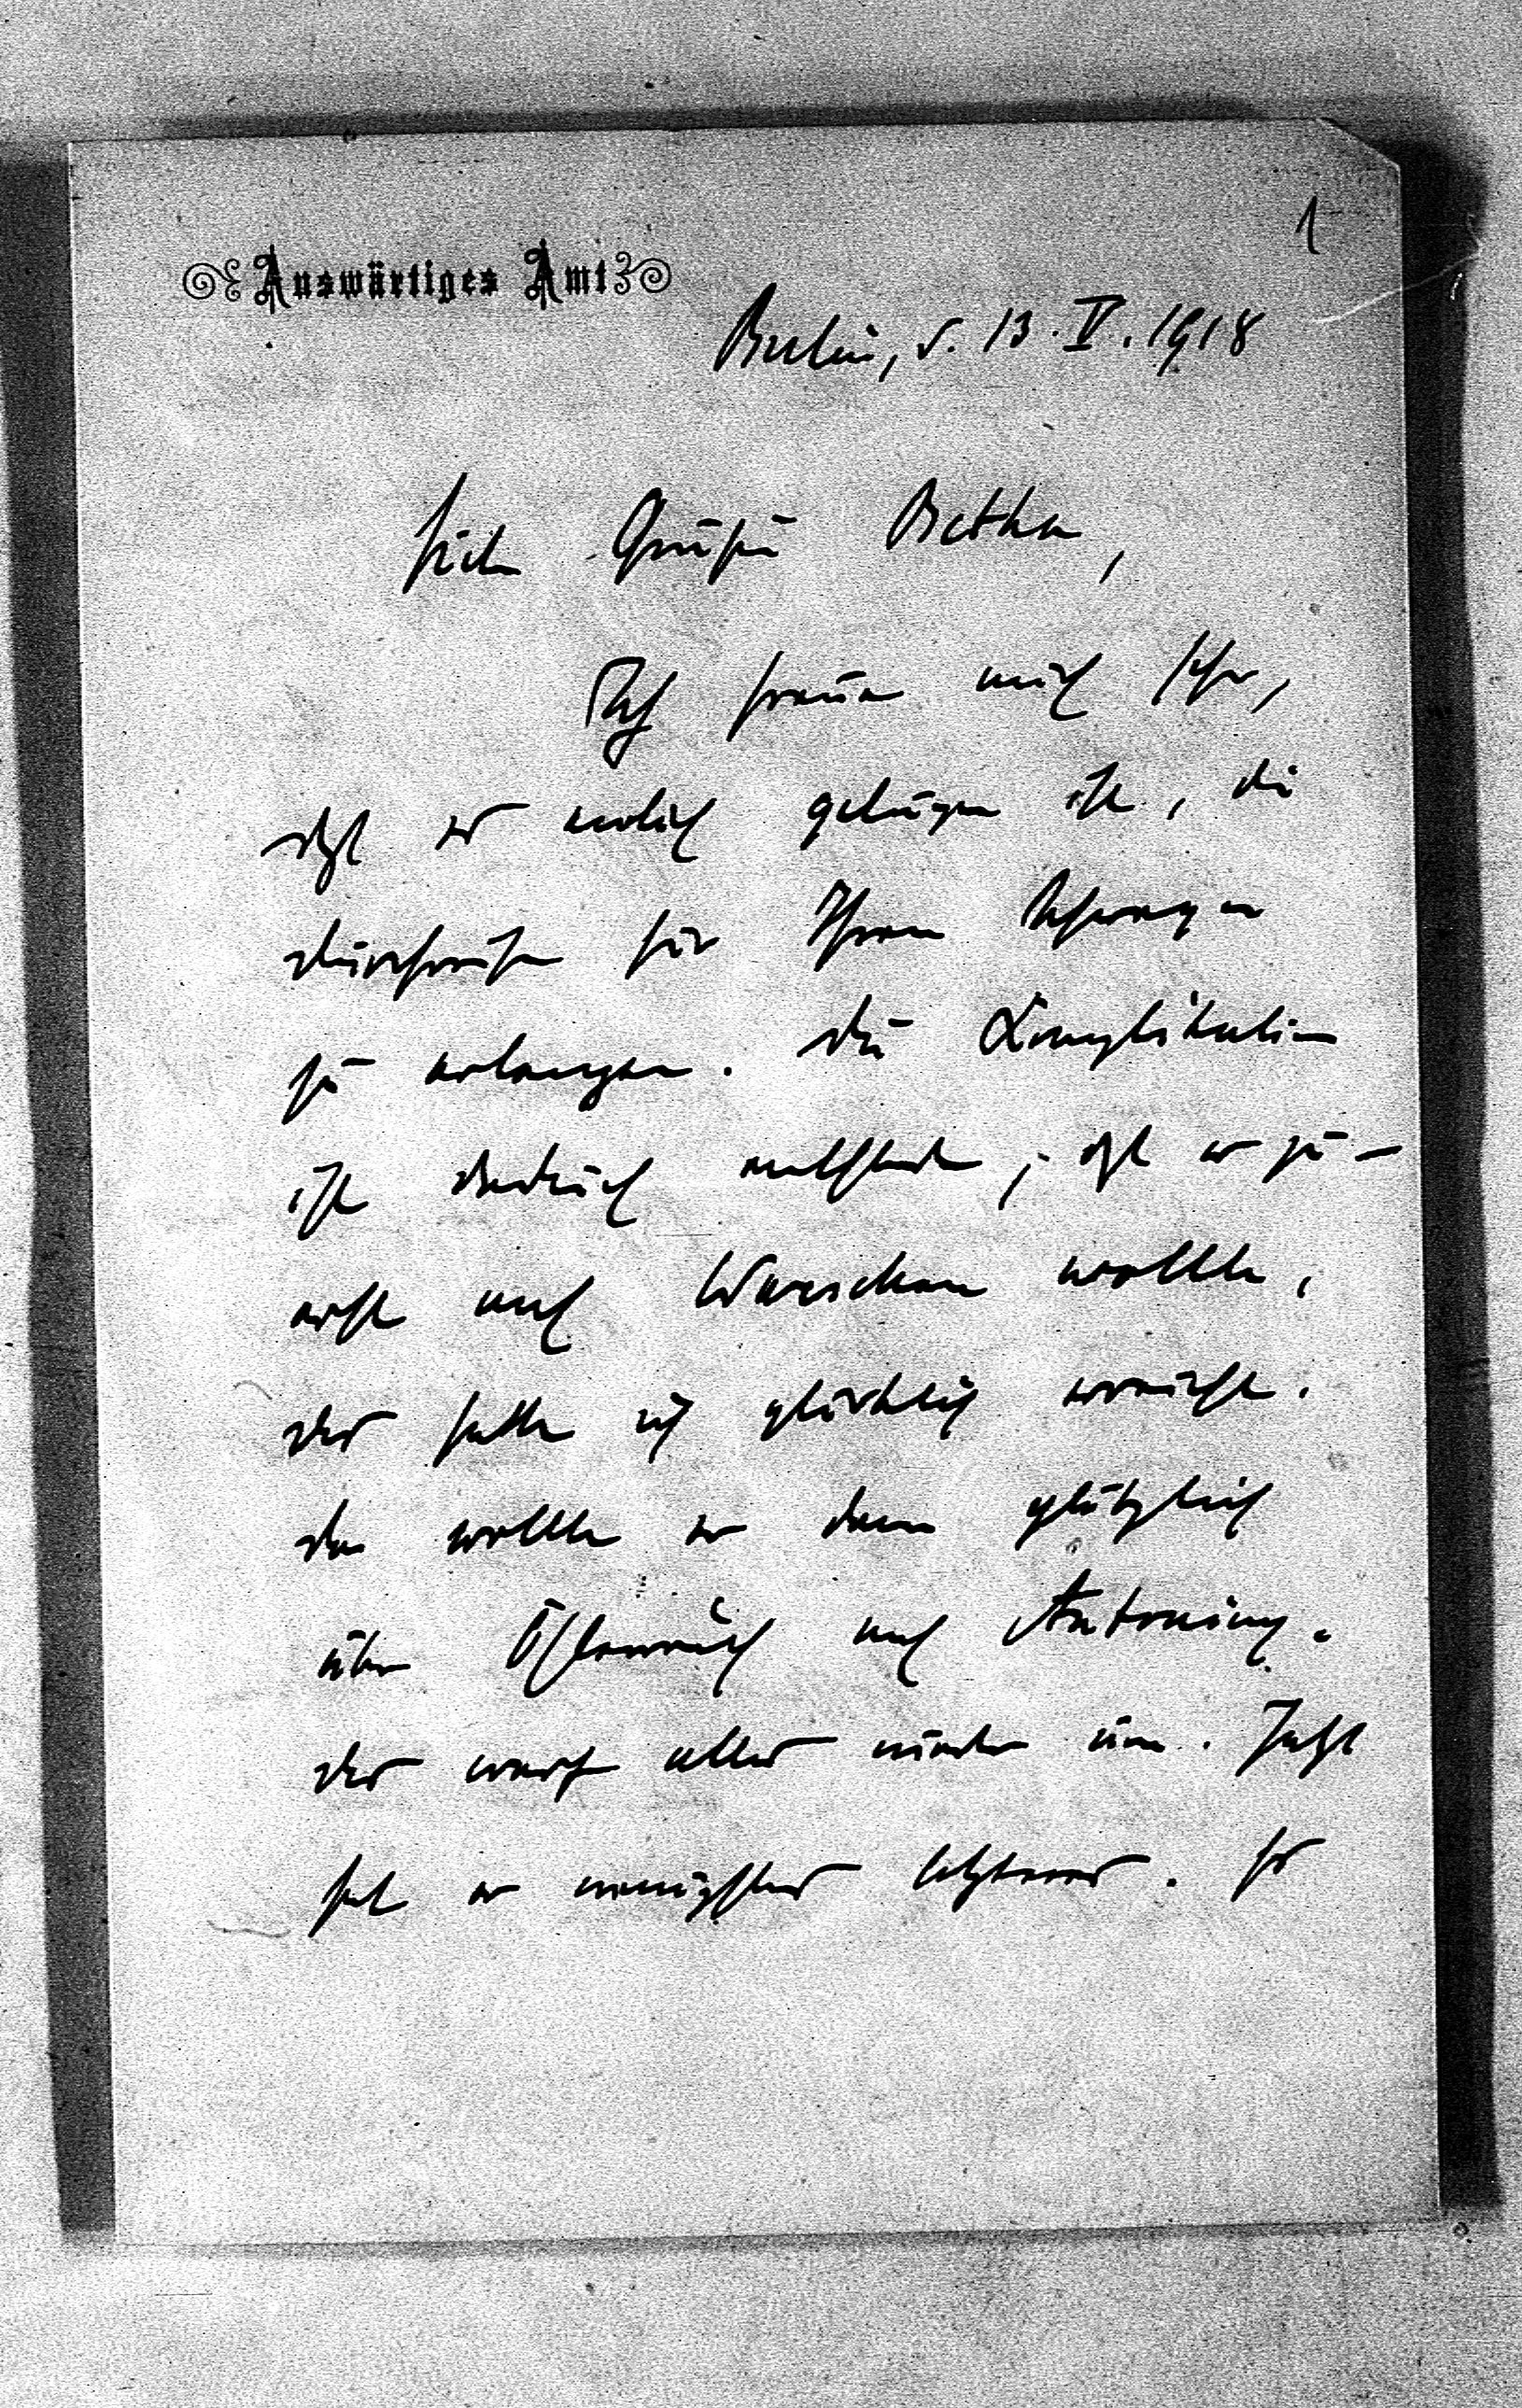 1
Auswärtiges Amt
Berlin, d. 13. V. 1918
Liebe Gräfin Betka,
Ich freue mich sehr,
daß es endlich gelungen ist, die
Durchreise für Ihren Schwager
zu erlangen. Die Komplikation
ist dadurch entstanden, daß er zu-
erst nach Warschau wollte,
das hatte ich glücklich erreicht.
Da wollte er dann plötzlich
über Österreich nach Antoniny.
Das warf alles wieder um. Jetzt
hat er wenigstens letzteres. Es